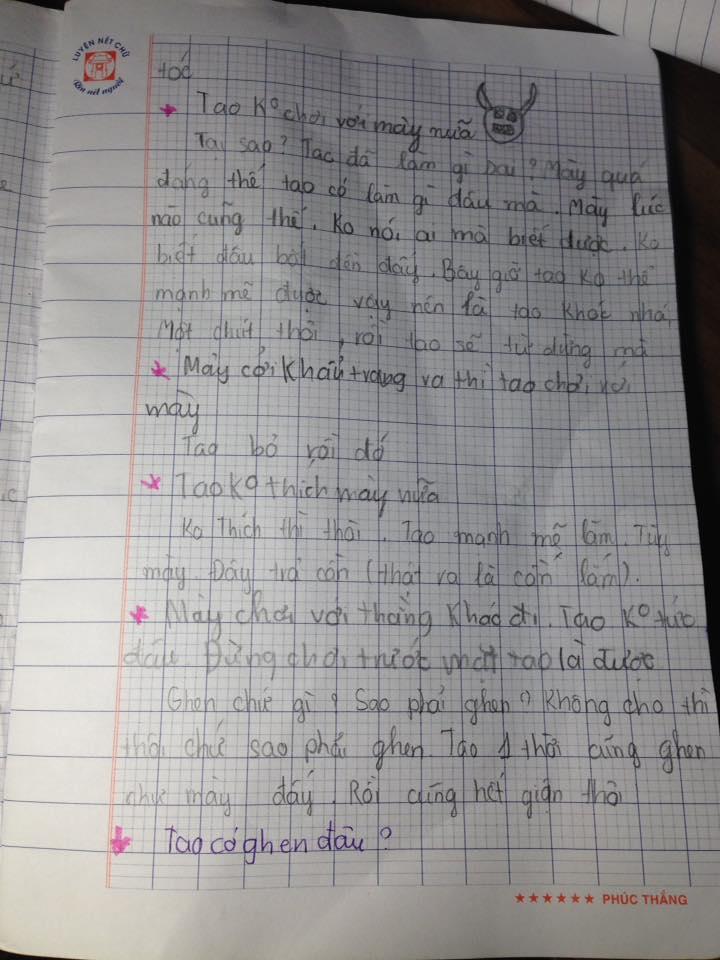 LUYỆN NÉT CHỮ
Rèn nết người
tóc
Tao Ko chơi với mày nữa
Tại sao? Tao đã làm gì sai? Mày quá
đáng thế tao có làm gì đâu mà. Mày lúc
nào cũng thế. Ko nói ai mà biết được. Ko
biết đâu bắt đền đấy. Bây giờ tao Ko thể
mạnh mẽ được vậy nên là tao khóc nhá.
Một chút thôi, rồi tao sẽ tự đứng mà
Mày cởi Khẩu trang ra thì tao chơi với
mày
Tao bỏ rồi đó
Tao Ko thích mày nữa
Ko Thích thì thôi. Tao mạnh mẽ lắm. Tùy
mày. Đây trả cần (thật ra là cần lắm).
Mày chơi với thằng Khác đi. Tao Ko tức
đâu. Đừng chơi trước mặt tao là được
Ghen chứ gì? Sao phải ghen? Không cho thì
thôi chứ sao phải ghen. Tao 1 thời cũng ghen
chứ mày đấy. Rồi cũng hết giận thôi
Tao có ghen đâu?
PHÚC THẮNG